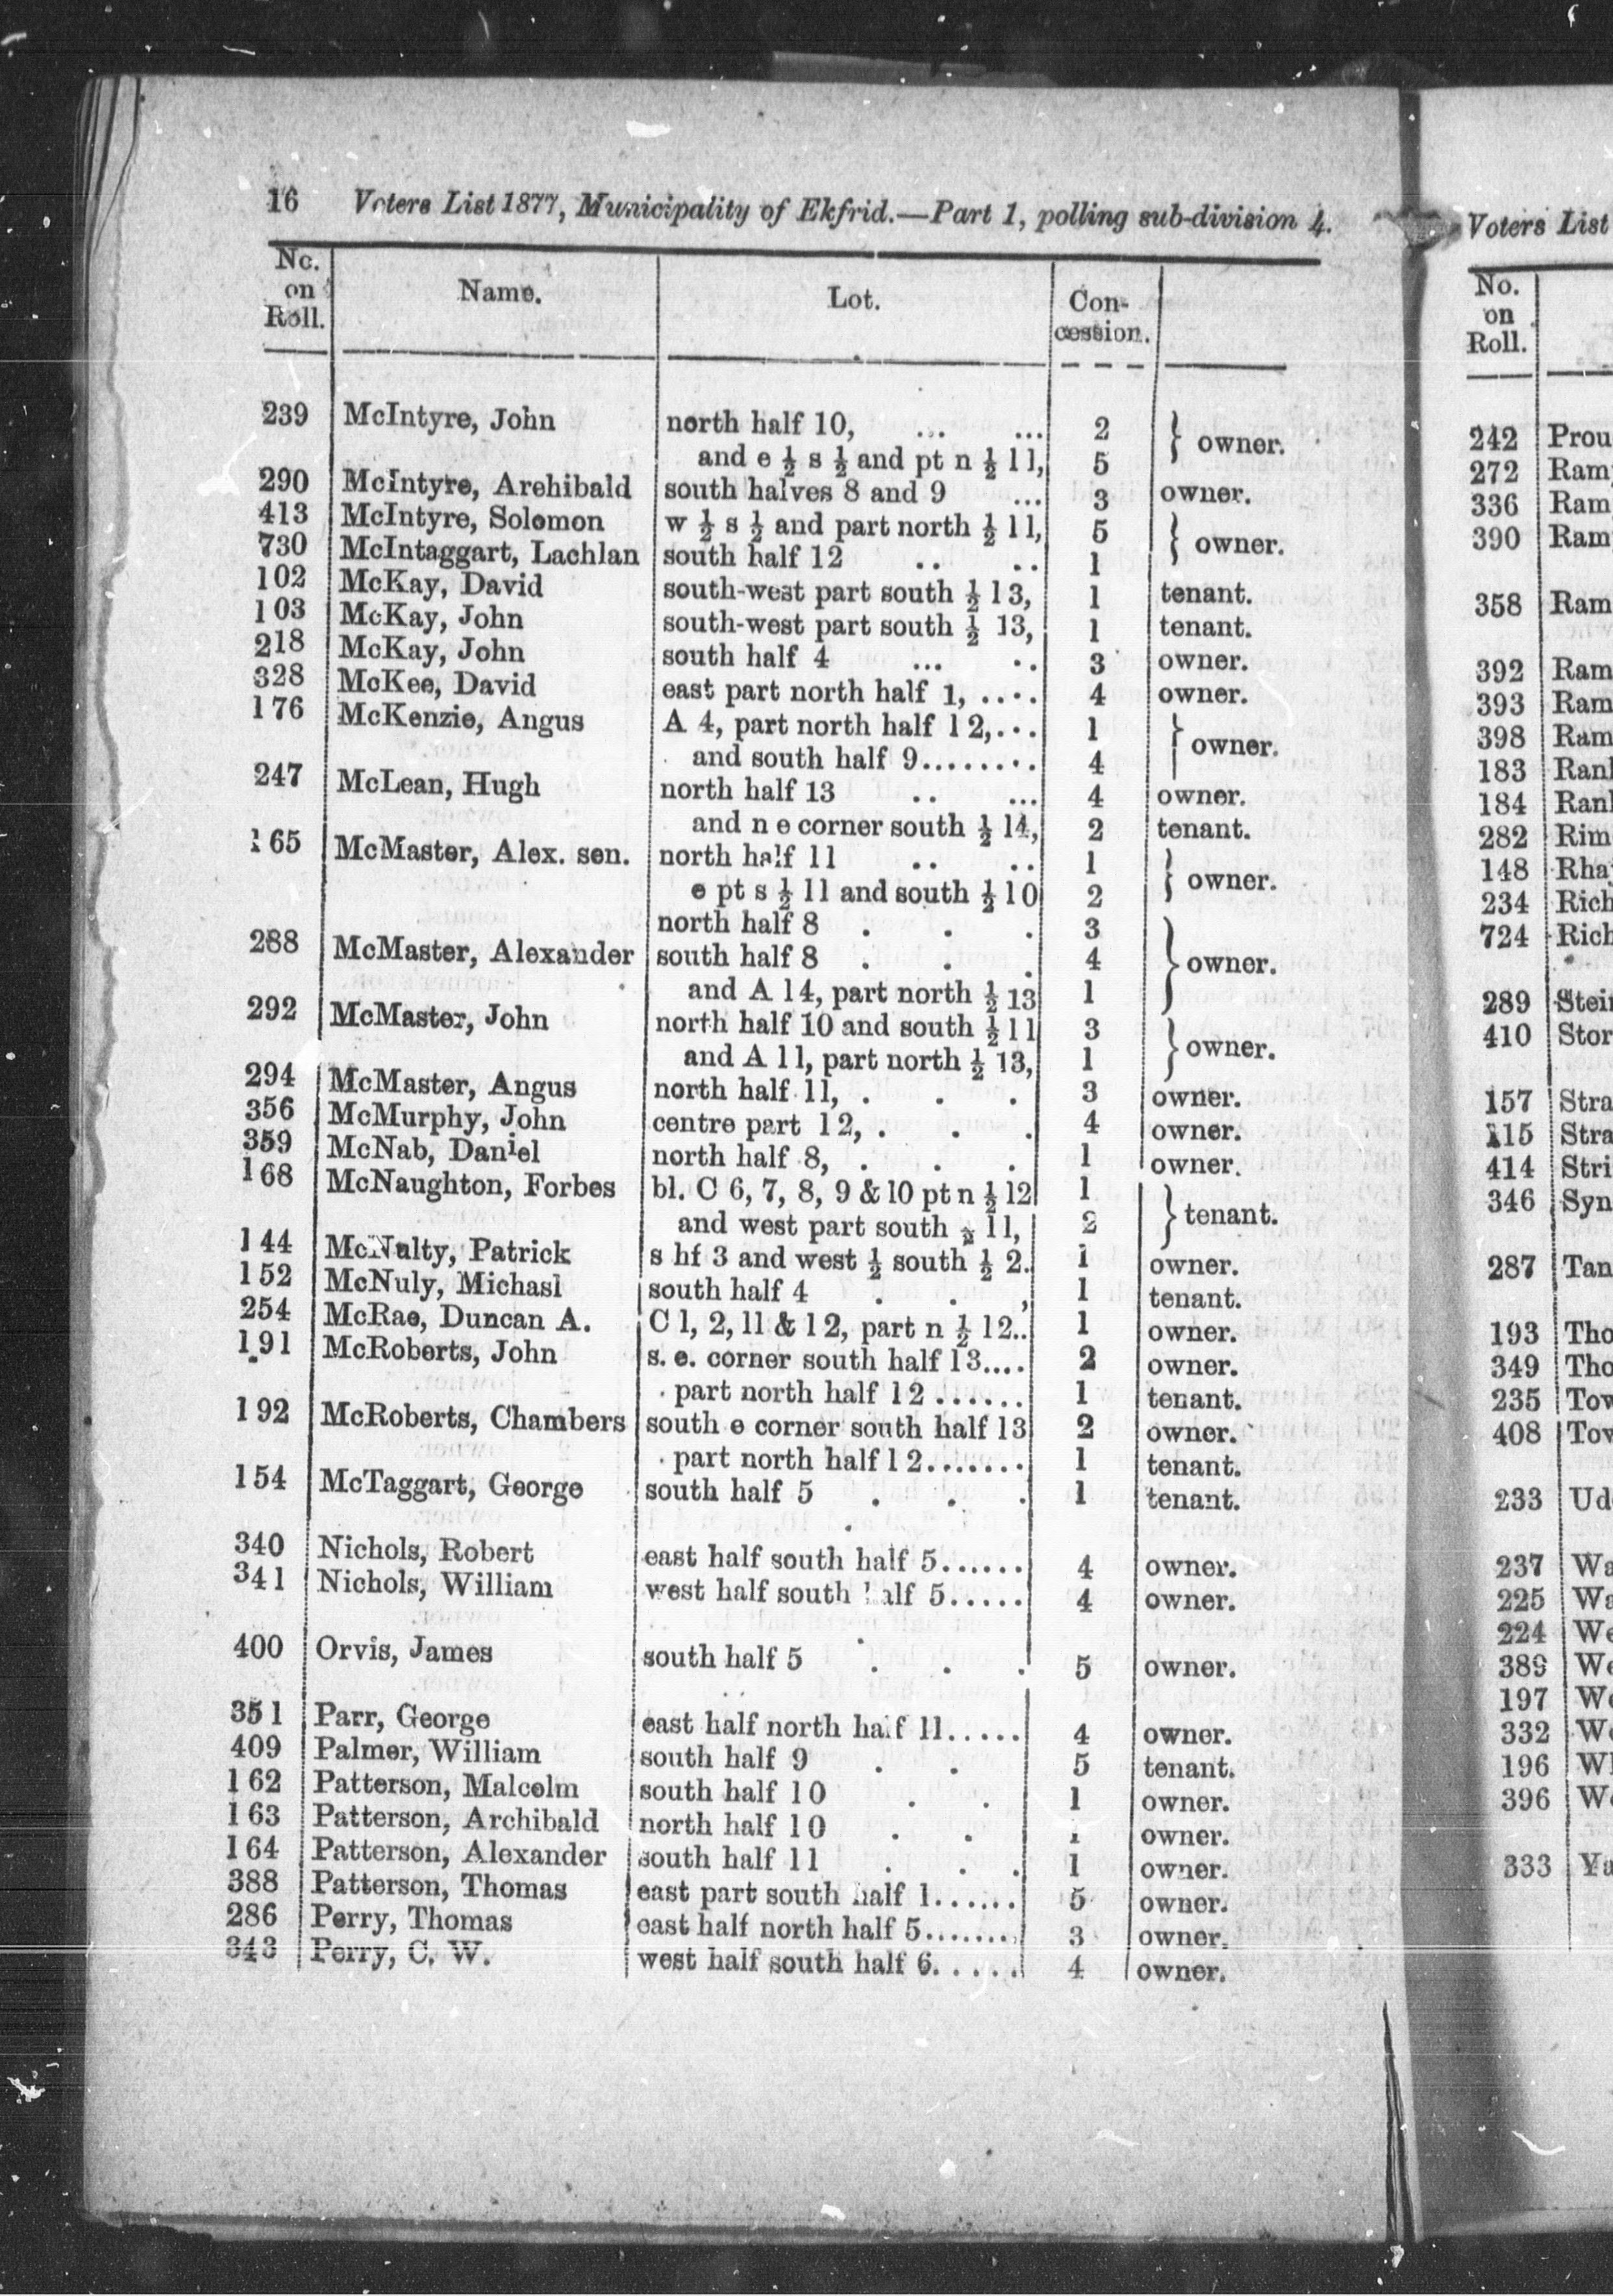 16 Voters List 1877, Municipality of Ekfrid.—Part 1, polling sub-division 4.
No. on Roll. Name. Lot. Concession.
239 McIntyre, John north half 10, ... ... 2 } owner.
and e ½ s ½ and pt n ½ 11, 5
290 McIntyre, Archibald south halves 8 and 9 ... 3 owner.
413 McIntyre, Solomon w ½ s ½ and part north ½ 11, 5 } owner.
730 McIntaggart, Lachlan south half 12 .. .. 1
102 McKay, David south-west part south ½ 13, 1 tenant.
103 McKay, John south-west part south ½ 13, 1 tenant.
218 McKay, John south half 4 ... .. 3 owner.
328 McKee, David east part north half 1, .... 4 owner.
176 McKenzie, Angus A 4, part north half 12,... 1 } owner.
and south half 9........ 4
247 McLean, Hugh north half 13 .. ... 4 owner.
and n e corner south ½ 14, 2 tenant.
165 McMaster, Alex. sen. north half 11 .. .. 1 } owner.
e pt s ½ 11 and south ½ 10 2
north half 8 . . . 3
288 McMaster, Alexander south half 8 . . . 4 } owner.
and A 14, part north ½ 13 1
292 McMaster, John north half 10 and south ½ 11 3 } owner.
and A 11, part north ½ 13, 1
294 McMaster, Angus north half 11, . . . 3 owner.
356 McMurphy, John centre part 12, . . . 4 owner.
359 McNab, Daniel north half 8, . . . 1 owner.
168 McNaughton, Forbes bl. C 6, 7, 8, 9 & 10 pt n ½ 12 1 } tenant.
and west part south ½ 11, 2
144 McNulty, Patrick s hf 3 and west ½ south ½ 2. 1 owner.
152 McNuly, Michasl south half 4 . . , 1 tenant.
254 McRae, Duncan A. C 1, 2, 11 & 12, part n ½ 12.. 1 owner.
191 McRoberts, John s. e. corner south half 13.... 2 owner.
part north half 12 ...... 1 tenant.
192 McRoberts, Chambers south e corner south half 13 2 owner.
part north half 12....... 1 tenant.
154 McTaggart, George south half 5 . . . 1 tenant.
340 Nichols, Robert east half south half 5...... 4 owner.
341 Nichols, William west half south half 5..... 4 owner.
400 Orvis, James south half 5 . . . 5 owner.
351 Parr, George east half north half 11..... 4 owner.
409 Palmer, William south half 9 . . 5 tenant.
162 Patterson, Malcolm south half 10 . . 1 owner.
163 Patterson, Archibald north half 10 . . 1 owner.
164 Patterson, Alexander south half 11 . . . 1 owner.
388 Patterson, Thomas east part south half 1...... 5 owner.
286 Perry, Thomas east half north half 5....... 3 owner.
343 Perry, C. W. west half south half 6..... 4 owner.
Voters List
No. on Roll.
242 Prou
272 Ram
336 Ram
390 Ram
358 Ram
392 Ram
393 Ram
398 Ram
183 Ran
184 Ran
282 Rim
148 Rha
234 Rich
724 Rich
289 Stei
410 Stor
157 Stra
115 Stra
414 Stri
346 Syn
287 Tan
193 Tho
349 Tho
235 Tow
408 Tow
233 Ud
237 Wa
225 Wa
224 We
389 We
197 We
332 We
196 Wh
396 We
333 Ya